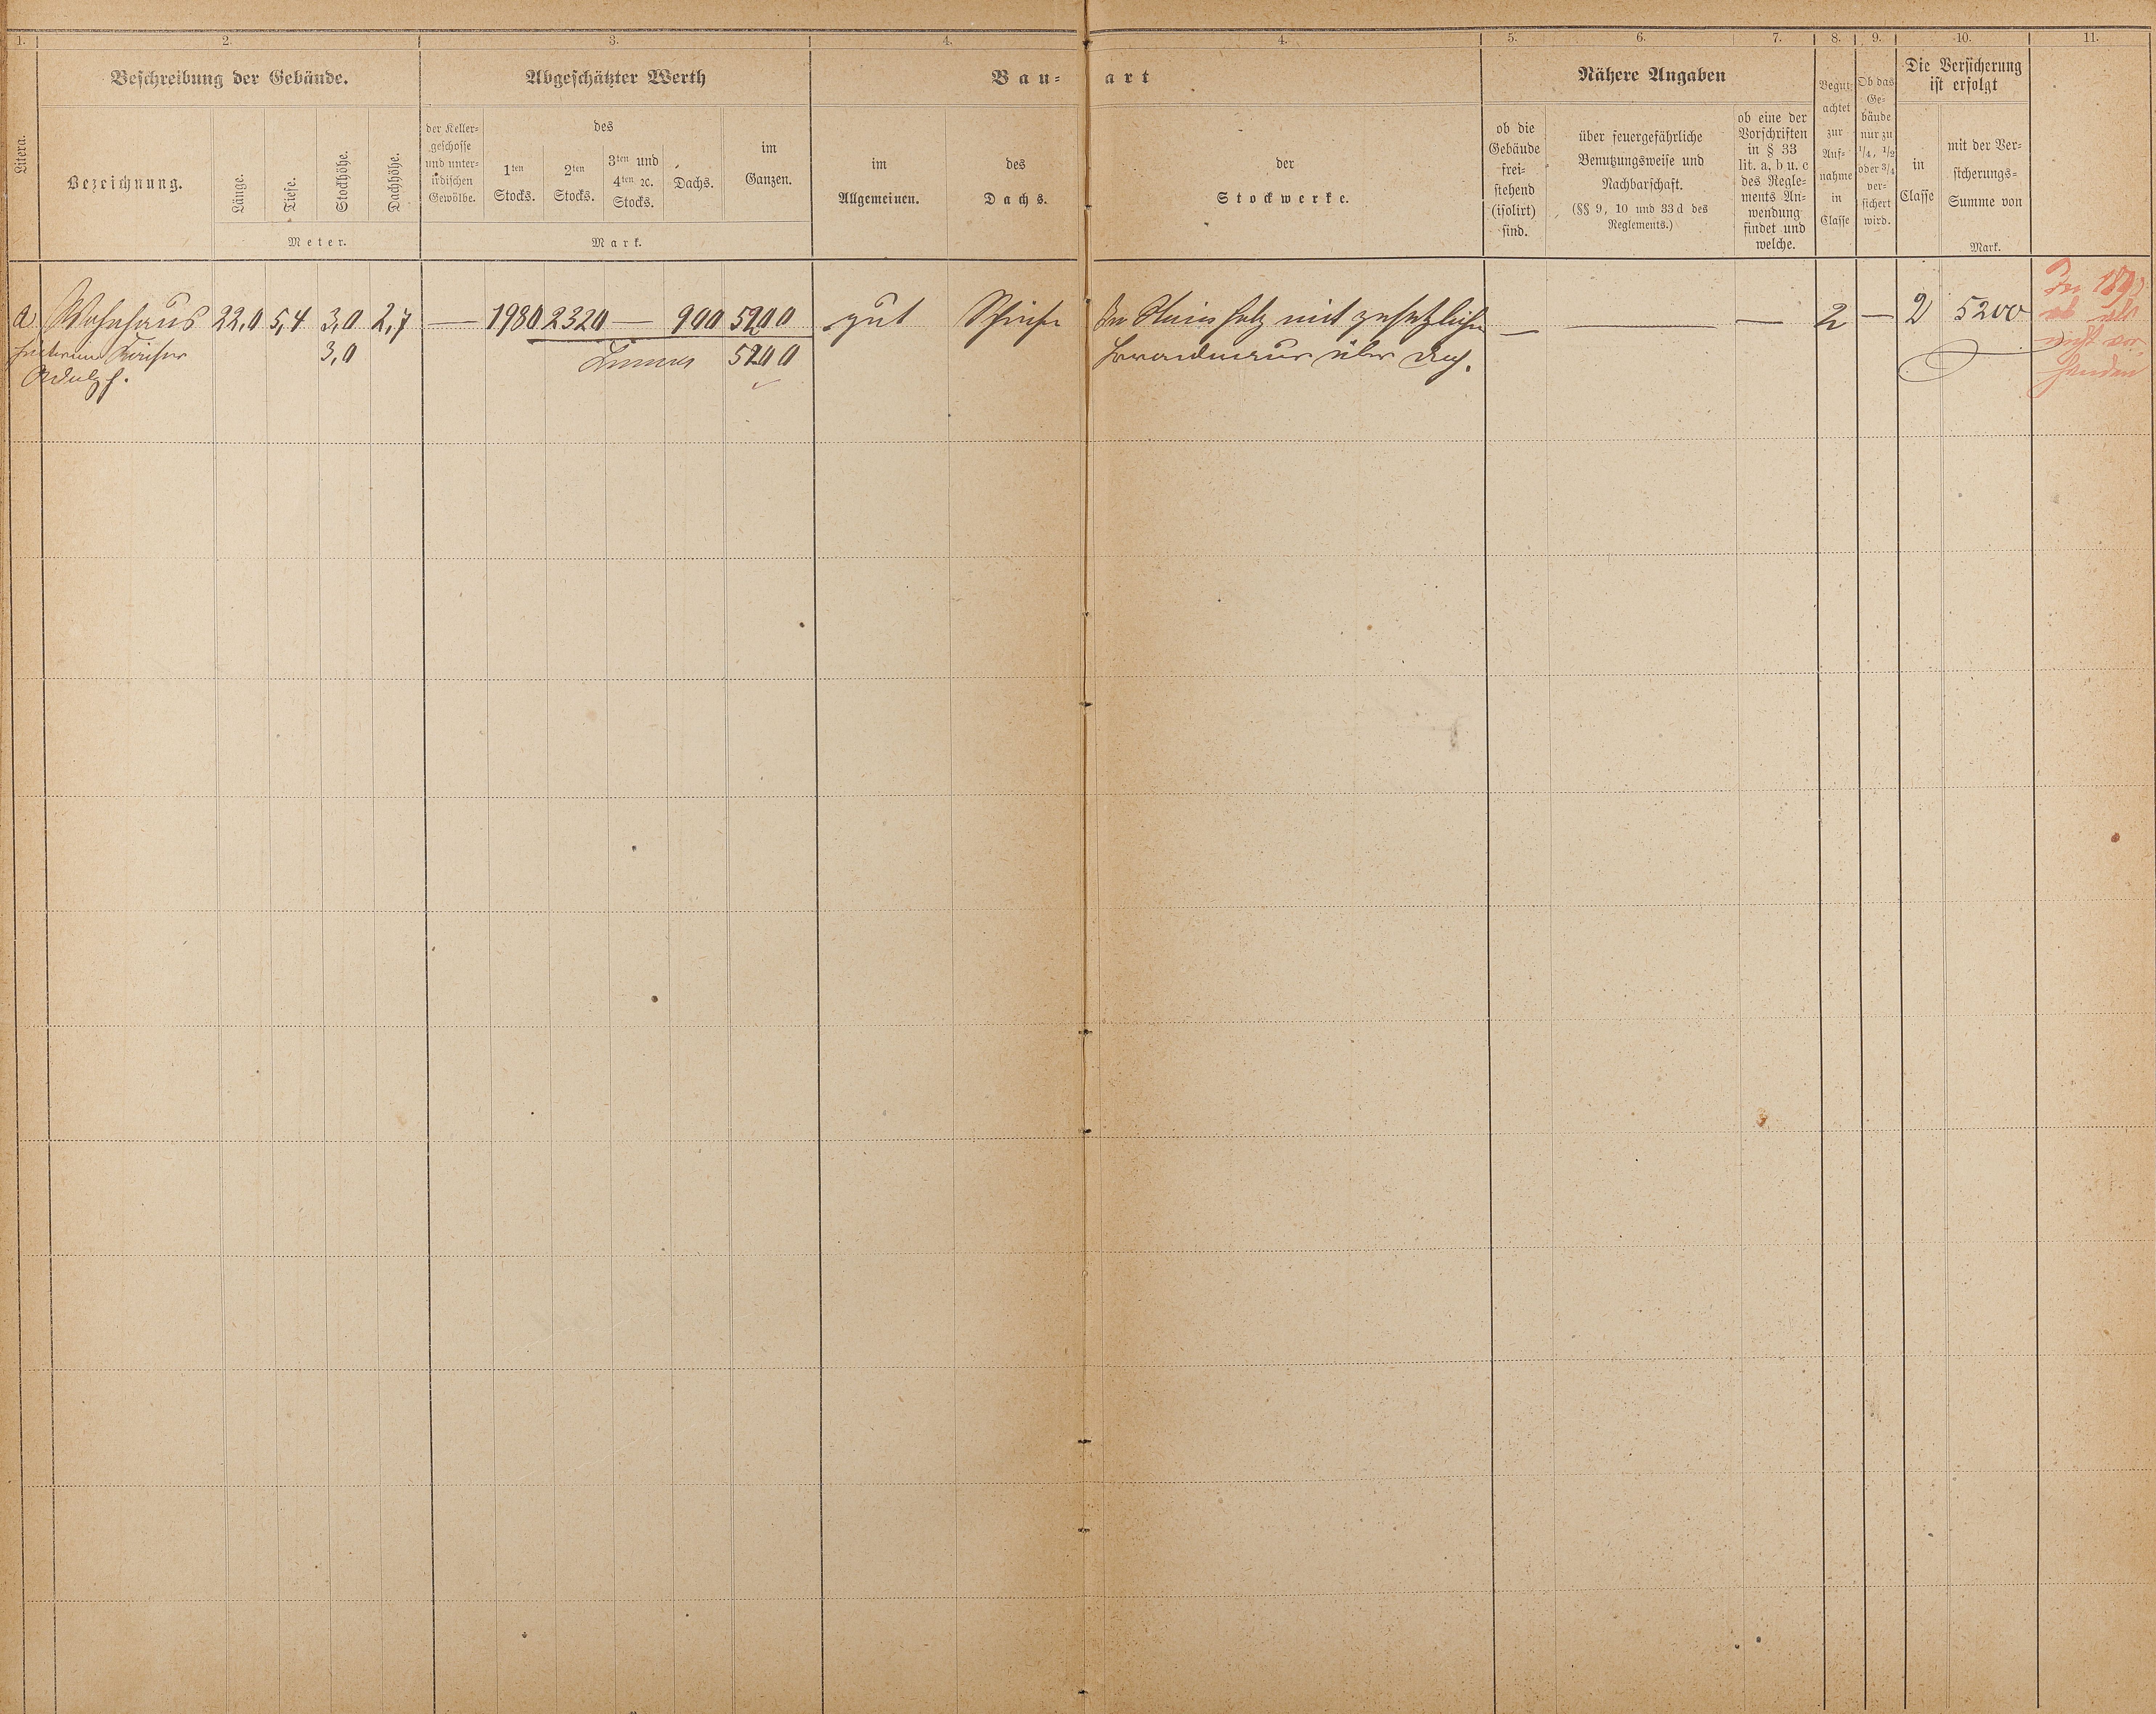 1. 2. 3. 4. 4. 5. 6. 7. 8. 9. 10. 11.
Litera.
Beschreibung der Gebäude.
Bezeichnung.
Länge.
Tiefe.
Stockhöhe.
Dachhöhe.
Meter.
Abgeschätzter Werth
der Keller-
geschosse
und unter-
irdischen
Gewölbe.
des
1ten
Stocks.
2ten
Stocks.
3ten und
4ten ꝛc.
Stocks.
Dachs.
im
Ganzen.
Mark.
Bau-art
im
Allgemeinen.
des
Dachs.
der
Stockwerke.
ob die
Gebäude
frei-
stehend
(isolirt)
sind.
Nähere Angaben
über feuergefährliche
Benutzungsweise und
Nachbarschaft.
(§§ 9, 10 und 33d des
Reglements.)
ob eine der
Vorschriften
in § 33
lit. a, b u. c
des Regle-
ments An-
wendung
findet und
welche.
Begut-
achtet
zur
Auf-
nahme
in
Classe
Ob das
Ge-
bäude
nur zu
1/4, 1/2
oder 3/4
ver-
sichert
wird.
Die Versicherung
ist erfolgt
in
Classe
mit der Ver-
sicherungs-
Summe von
Mark.
a Wohnhaus 22,0 5,4 3,0 2,7 — 1980 2320 — 900 5200 gut Schiefer In Stein Holz mit gesetzlicher — — — 2 — 2 5200
3,0 Summa 5200 Brandmauer über Dach.
Adolph.
nicht vor-
handen